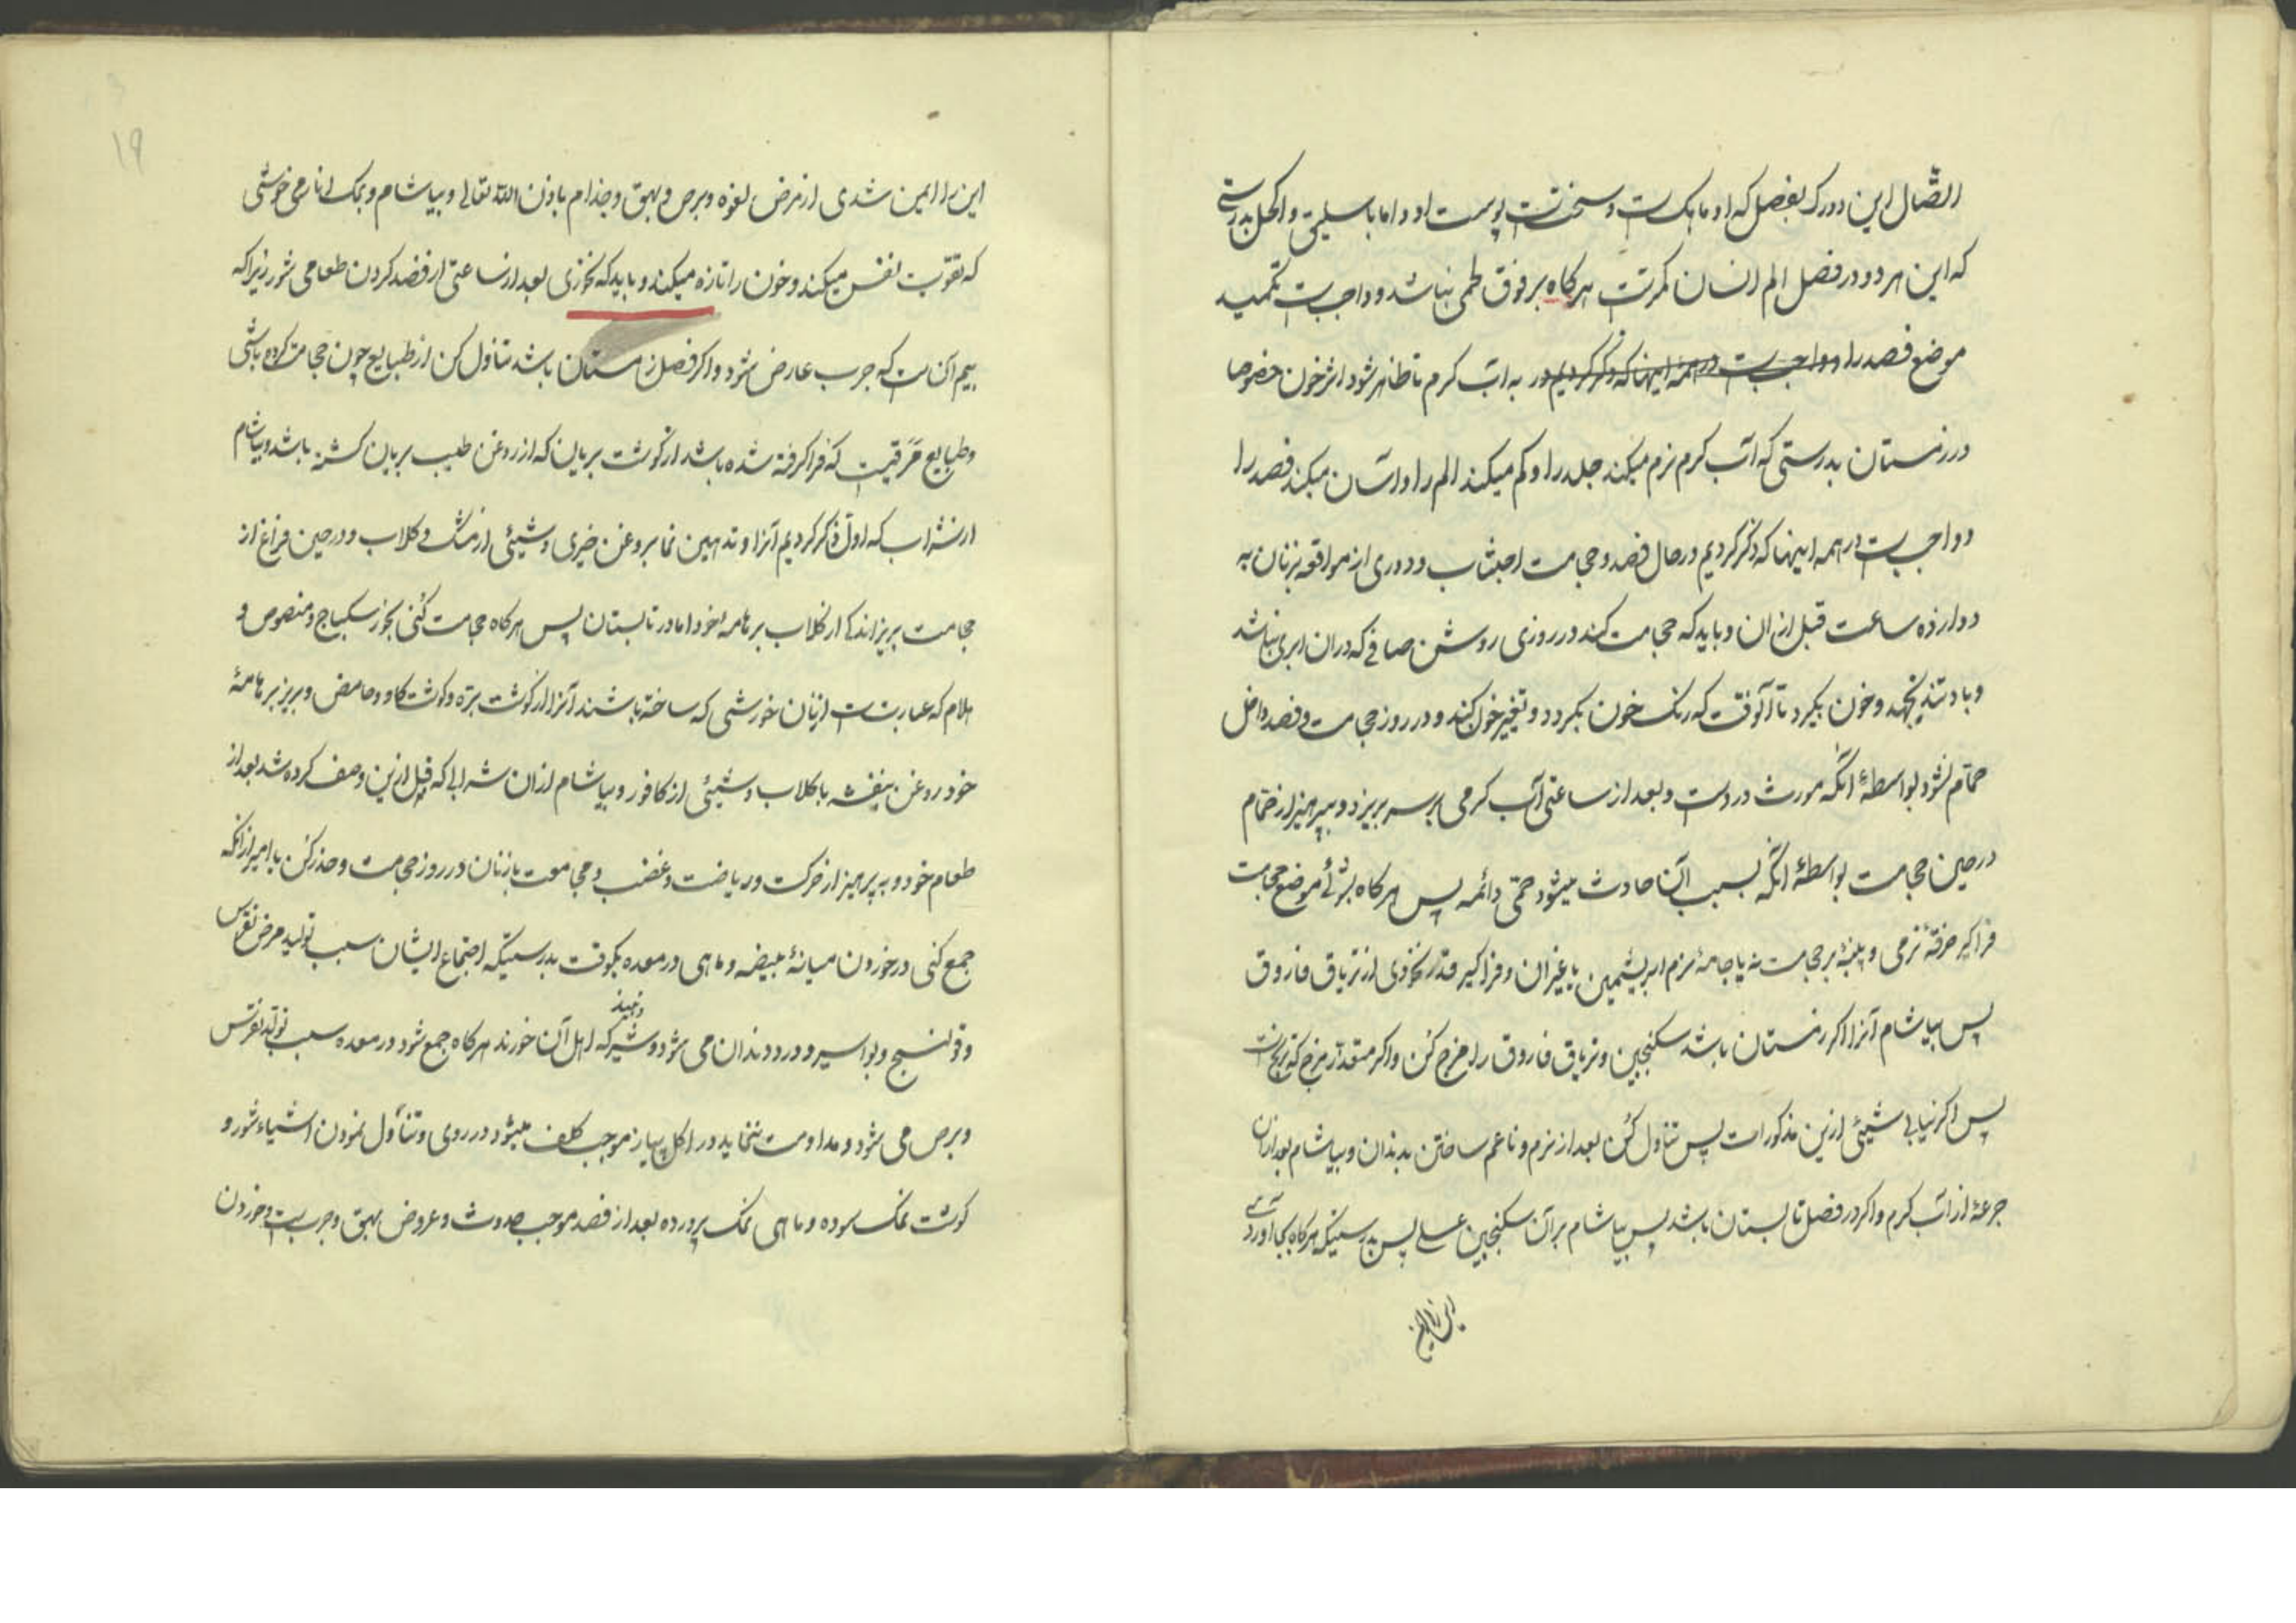 اتصال این دو رک بفصل که او ماهک است و سخت است پوست او و اما باسلیق و اکحل بدرستی
که این هر دو در فصل الم انسان کمرتست هرکاه بر فوق لحمی نباشد و واجبست تکمید
موضع فصد را و واجبست در همه اینها که ذکر کردیم در به آب کرم تا ظاهر شود اثر خون خصوصا
در زمستان بدرستی که آب کرم نرم میکند جلد را و کم میکند الم را و آسان میکند فصد را
و واجبست در همه اینها که ذکر کردیم در حال فصد و حجامت اجتناب و دوری از مواقعه بزنان به
دوازده ساعت قبل از ان و باید که حجامت کند در روزی روشن صافی که در ان ابری نباشد
و باد تند نجهد و خون بگیرد تا آنوقت که رنک خون بگردد و تغیر خون کند و در روز حجامت و فصد داخل
حمّام نشود بواسطۀ آنکه مورث دردست و بعد از ساعتی آب کرمی بر سر بریزد و بپرهیز از حمّام
در حین حجامت بواسطۀ آنکه بسبب آن حادث میشود حمّی دائمه پس هرکاه بشوئی موضع حجامت
فراکیر خرقۀ نرمی و پنبۀ بر حجامت نه یا جامۀ نرم ابریشمین یا غیر آن و فراکیر قدر نخودی از تریاق فاروق
پس بیاشام آنرا اکر زمستان باشد سکنجبین و تریاق فاروق را مزج کن و اکر
پس اکر نیابی شیئی ازین مذکورات پس تناول کن بعد از نرم و ناعم ساختن بدندان و بیاشام بعد از ان
جرعۀ از آب کرم و اکر در فصل تابستان باشد پس بیاشام بر آن سکنجبین عسلی پس بدرستیکه هرکاه بجا آوردی
این را ایمن
این را ایمن شدی از مرض لغوه و برص و بهق و جذام باذن الله تعالی و بیاشام و بمک انار می خوشی
که تقویت نفس میکند و خون را تازه میکند و باید که نخوری بعد از ساعتی از فصد کردن طعامی شور زیرا که
بیم آن است که جرب عارض شود و اکر فصل زمستان باشد تناول کن از طبایع چون حجامت کرده باشی
و طبایع مرقیست که فراکرفته شده باشد از کوشت بریان که از روغن طیب بریان کشته باشد و بیاشام
از شراب که اول ذکر کردیم آنرا و تدهین نما بروغن خیری و شیئی از مشک و کلاب و در حین فراغ از
حجامت بریز اندکی از کلاب بر هامۀ خود اما در تابستان پس هرکاه حجامت کنی بخور سکباج و منصوص و
هلام که عبارتست از نان خورشی که ساخته باشند آنرا از کوشت بره و کوشت کاو و حامض و بریز بر هامۀ
خود روغن بنفشه با کلاب و شیئی از کافور و بیاشام از ان شرابی که قبل ازین وصف کرده شد بعد از
طعام خود و بپرهیز از حرکت و ریاضت و غضب و مجامعت با زنان در روز حجامت و حذر کن یا امیر از آنکه
جمع کنی در خوردن میانۀ بیضه و ماهی در معده یکوقت بدرستیکه اجتماع ایشان سبب تولید مرض نقرس
و قولنج و بواسیر و درد دندان می شود و شیر و نبیذ که اهل آن خورند هرکاه جمع شود در معده سبب تولد نقرس
و برص می شود و مداومت ننماید در اکل پیاز موجب کلف میشود در روی و تناول نمودن اشیاء شور و
کوشت نمک سوده و ماهی نمک پرورده بعد از فصد موجب حدوث و عروض بهق و جربست و خوردن
۱۹